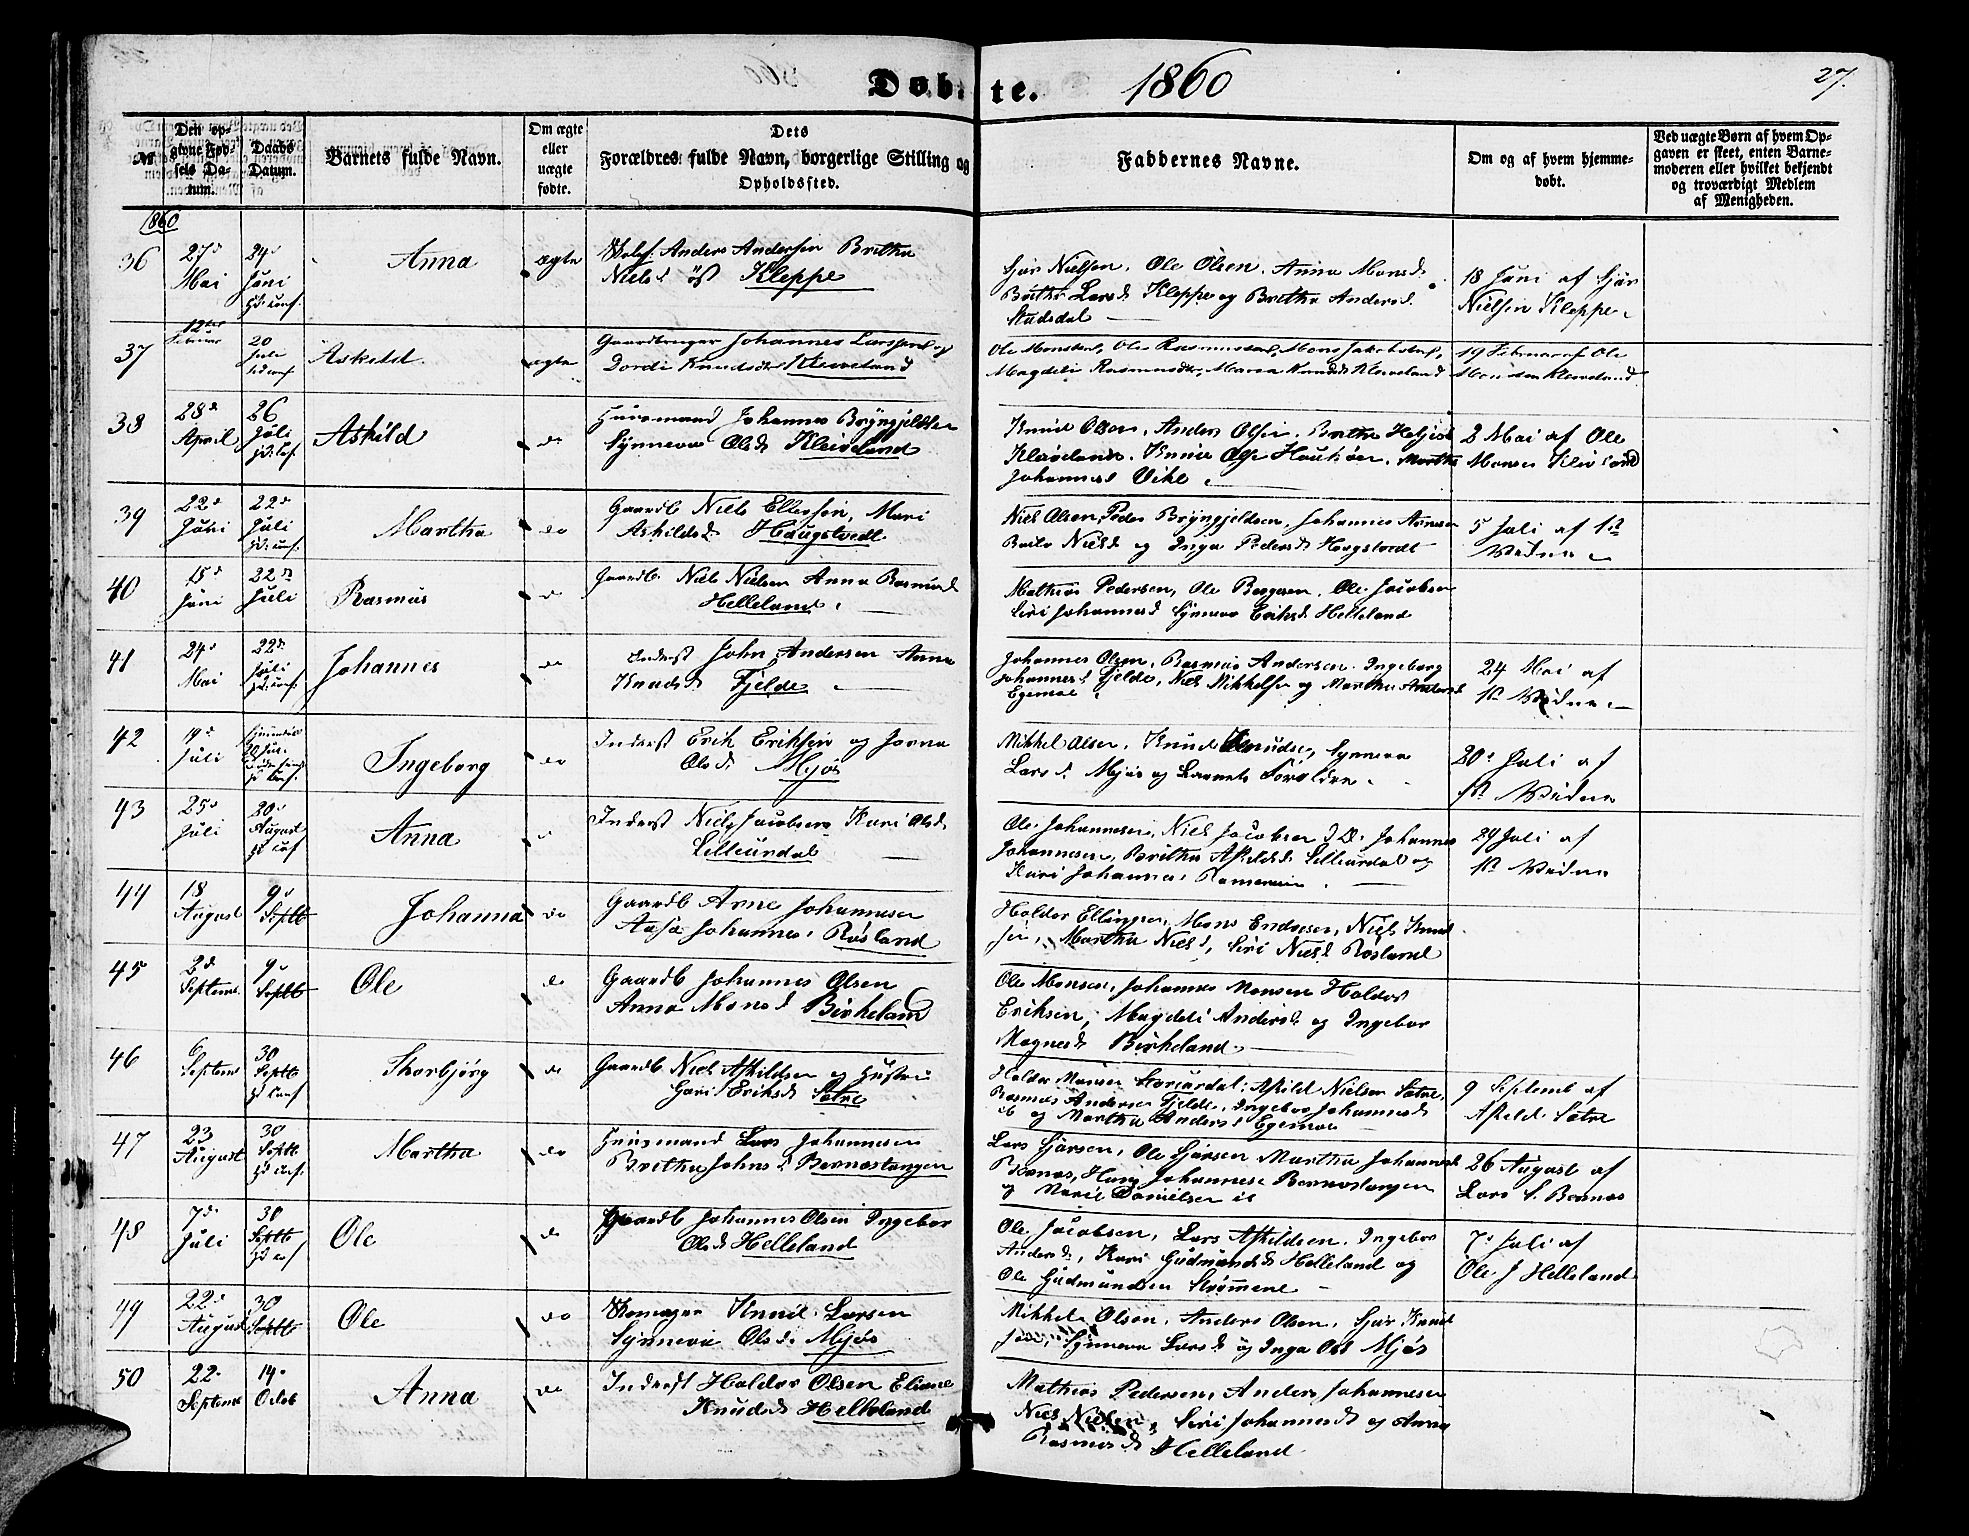 Døbte. 1860
27.
№
Den op-
givne Fød-
sels Da-
tum.
Daabs
Datum.
Barnets fulde Navn.
Om ægte
eller
uægte
fødte.
Dets
Forældres fulde Navn, borgerlige Stilling og
Opholdssted.
Faddernes Navne.
Om og af hvem hjemme-
døbt.
Ved uægte Børn af hvem Op-
gaven er skeet, enten Barne-
moderen eller hvilket bekjendt
og troværdigt Medlem
af Menigheden.
1860
36
27d
Mai
24d
Juni
Anna
ægte
Anders Andersen Britha
Nielsd Kleppe
Sjur Nielsen, Ole Olsen, Anna Monsd
Britha Larsd Kleppe og Britha Andersd
Studsdal
18 Juni af Sjur
Nielsen Kleppe
37
12te
Februar
20
Juli
Askild
ægte
Gaardbruger Johannes Larssen og
Dordi Knudsd Kleveland
Ole Monsen, Ole Rasmussen, Mons Jakobsen,
Magdeli Rasmusdtr, Maria Knudsd Kleveland
19 Februar af Ole
Monsen Kleveland
38
28d
April
26
Juli
Askild
do
Huusmand Johannes Brynjeldsen
Synneva Olsd Kleiveland
Knud Olsen, Anders Olsen, Britha Helgesd
Kleiveland, Knud Olsen, Martha
Johannesd Vike
2 Mai af Ole
Monsen Kleiveland
39
22d
Juni
22d
Juli
Martha
do
Gaardb Niels Ellefsen, Mari
Askildsd Haugstvedt
Niels Olsen, Peder Brynjeldsen, Johannes Arnesen
Nielsd og Inga Pedersd Haugstvedt
5 Juli af
40
15d
Juni
22d
Juli
Rasmus
do
Gaardb. Niels Nielsen Anna Rasmusd
Helleland
Mathias Pedersen, Ole Børgesen, Ole Jacobsen
Siri Johannesd Synneva Eriksd Helleland
41
24d
Mai
22d
Juli
Johannes
do
Inderst John Andersen Anna
Knudsd Fjelde
Johannes Olsen, Rasmus Andersen, Ingeborg
Johannesd Fjelde, Niels Mikkelsen og Martha Andersd
Egemoe
24 Mai af
42
19d
Juli
Ingeborg
do
Inderst Erik Eriksen og
Olsd Mjøs
Mikkel Olsen, Knud Knudsen, Synneva
Larsd Mjøs og Barnets Forældre
20d Juli af
43
25d
Juli
20d
August
Anna
Inderst Niels Jacobsen Kari Olsd
Lilleurdal
Ole Johannesen, Niels Jacobsen, Johannes
Johannesen, Britha Askildsd Lilleurdal og
Kari Johannesd
29 Juli af
44
18
August
9d
Septb
Johanna
do
Gaardb Arne Johannesen
Aasa Johannesd Røsland
Haldor Ellingsen, Mons Endresen, Niels Knud
sen, Martha Nielsd, Siri Nielsd Røsland
45
2d
Septemb
9d
Septb
Ole
do
Gaardb Johannes Olsen
Anna Monsd Birkeland
Ole Monsen, Johannes Monsen Haldor
Eriksen, Magdeli Andersd og Ingebor
Magnesd Birkeland
46
6
Septemb
30
Septb
Thorbjørg
do
Gaardb Niels Askildsen og Hustru
Guri Eriksd Sætre
Haldor Monsen Storurdal, Askild Nielsen Sætre,
Rasmus Andersen Fjelde, Ingebor Johannesd
og Martha Andersd Egemoe
9 Septemb af
Askild Sætre
47
23
August
30
Septb
Martha
do
Huusmand Lars Johannesen
Britha Johnsd Bernæstangen
Lars Sjursen, Ole Sjursen Martha Johannesd
Bernæs, Hans Johannesen Bernæstangen
og Marie Danielsen
26 August af
Lars S. Bernæs
48
7d
Juli
30
Septb
Ole
do
Gaardb Johannes Olsen Ingebor
Olsd Helleland
Ole Jacobsen, Lars Askildsen, Ingebor
Andersd, Kari Gudmundsd Helleland og
Ole Gudmundsen Strømmene
7d Juli af
Ole J Helleland
49
22d
August
30
Septb
Ole
do
Larsen
Synneva Olsd Mjøs
Mikkel Olsen, Anders Olsen, Sjur Knud
sen, Synneva Larsd og Inga Olsd Mjøs
50
22
Septemb
14
Octob
Anna
do
Inderst Haldor Olsen
Knudsd Helleland
Mathias Pedersen, Anders Johannesen
Niels Nielsen, Siri Johannesd og Anna
Rasmusd Helleland